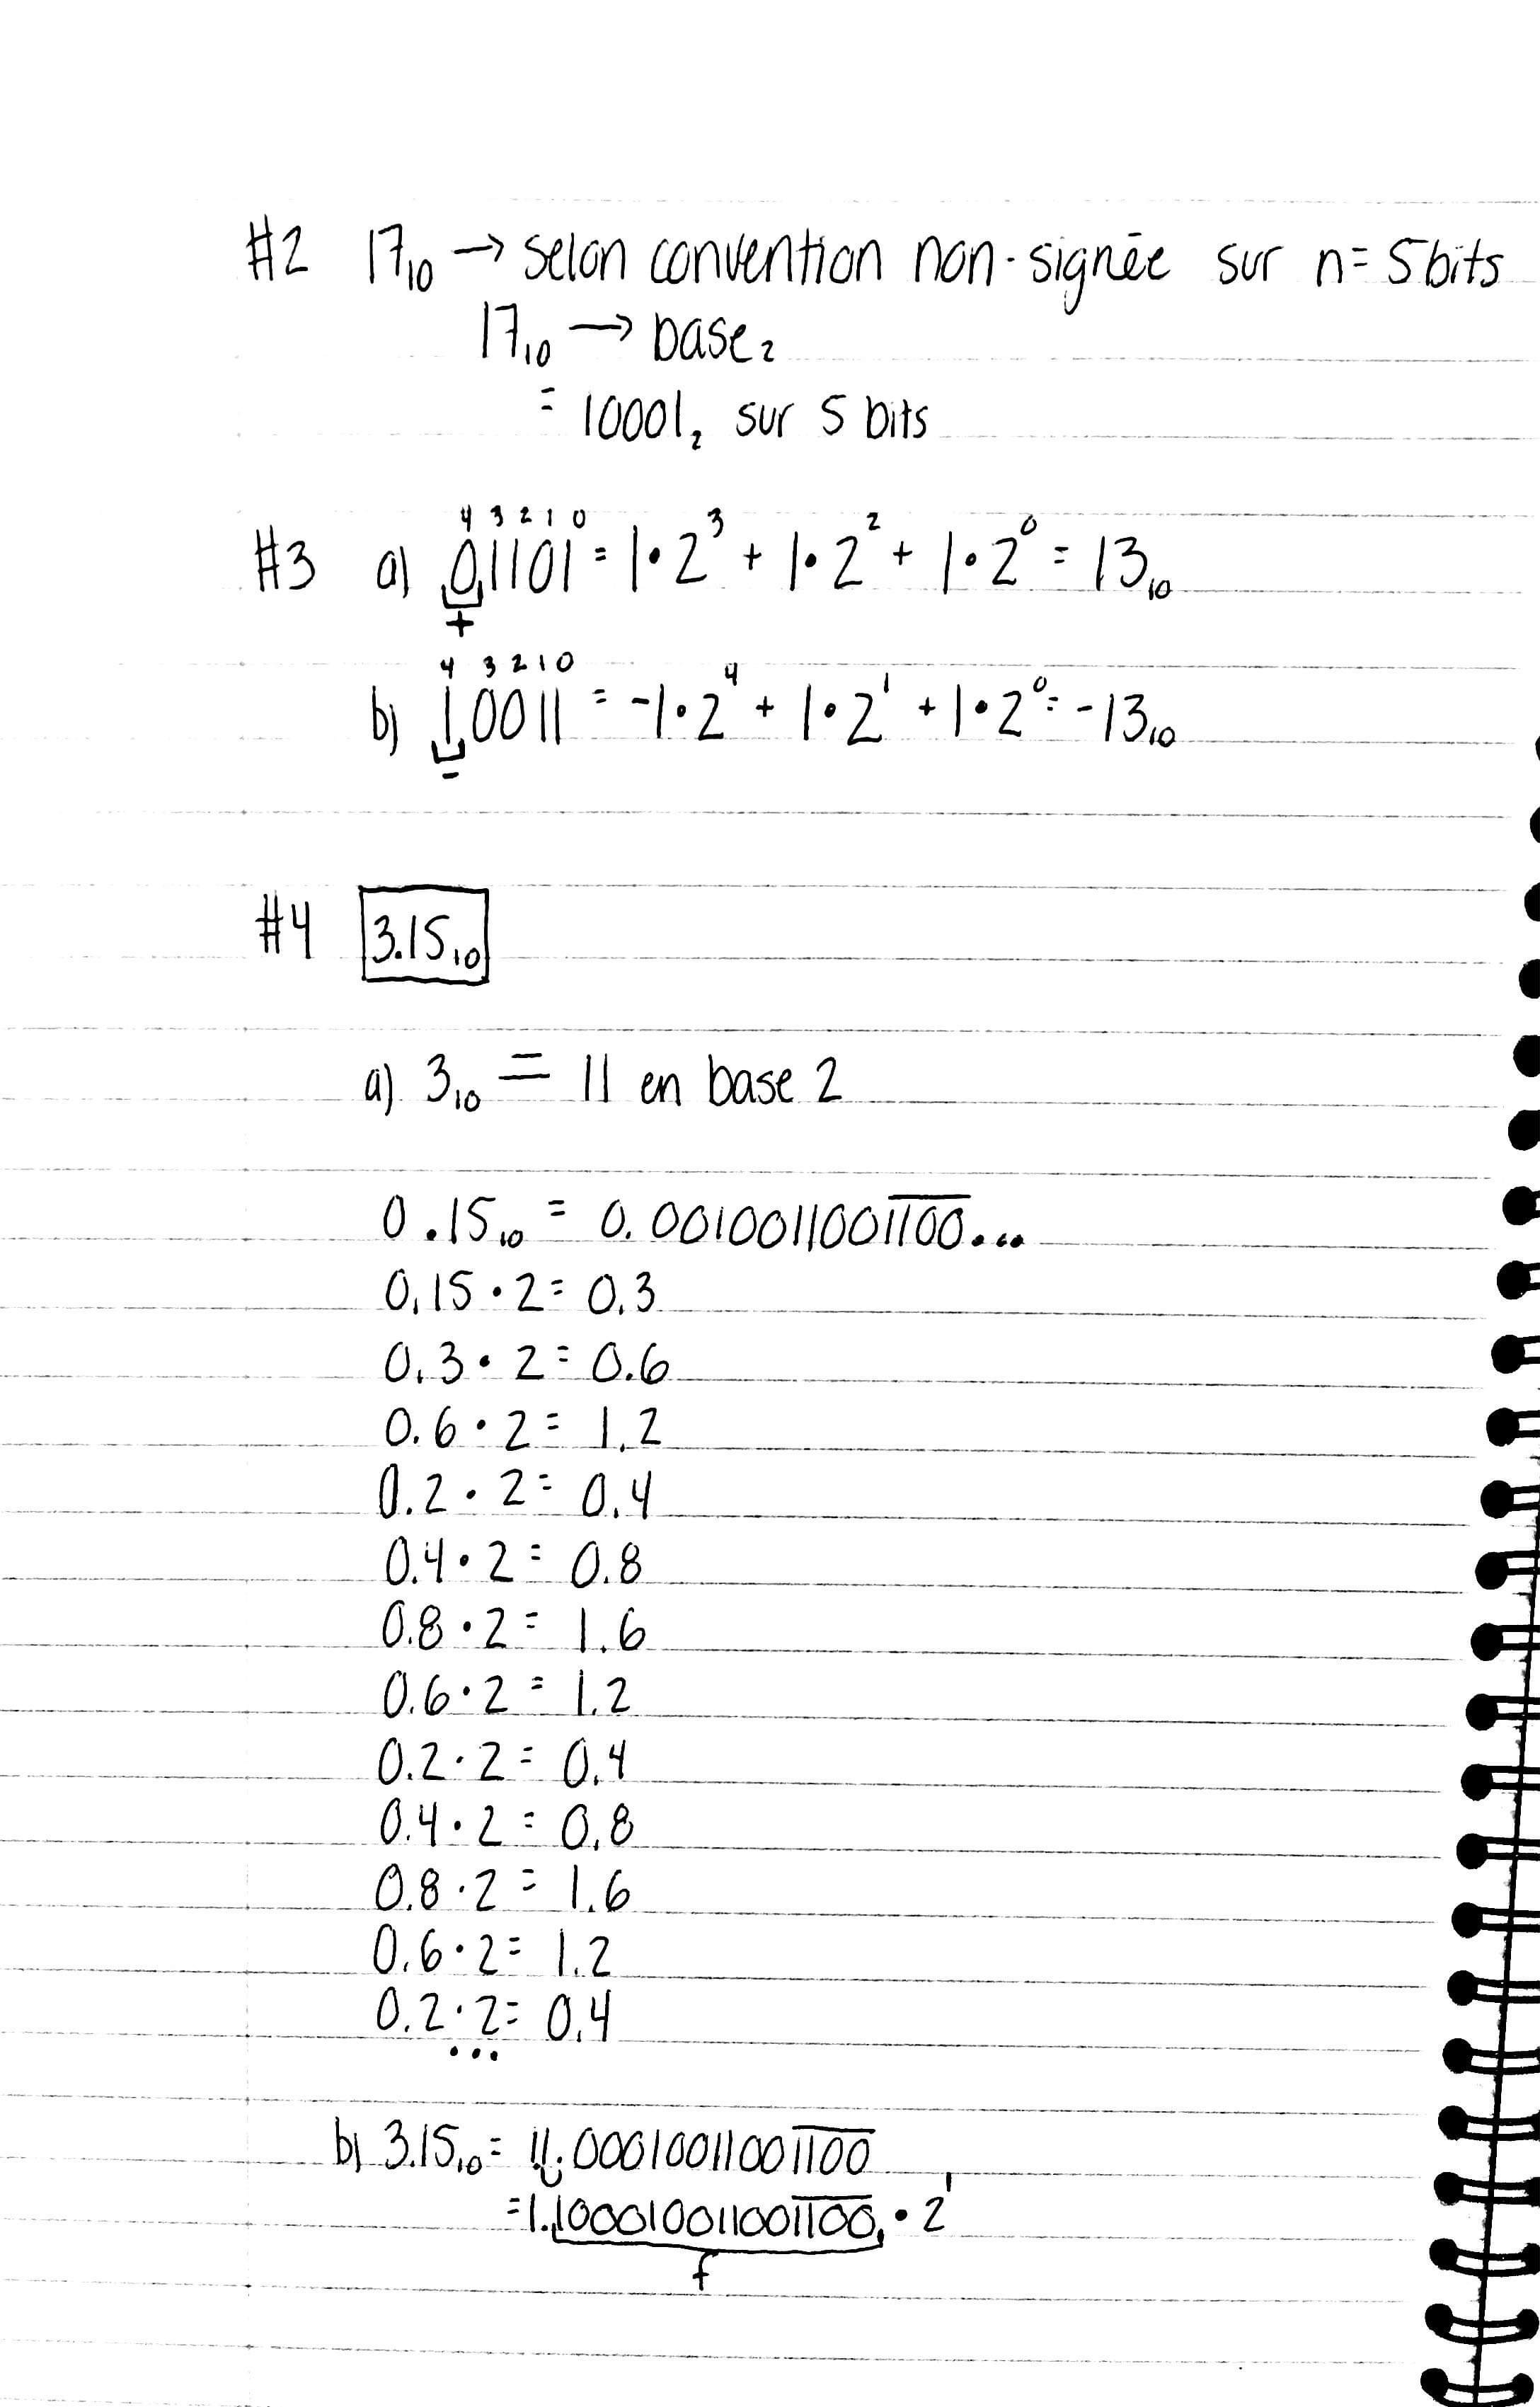 #2 17₁₀ → selon convention non-signée sur n = 5 bits
17₁₀ → base₂
= 10001₂ sur 5 bits
4 3 2 1 0
#3 a) 01101 = 1•2³ + 1•2² + 1•2⁰ = 13₁₀
+
4 3 2 1 0
b) 10011 = -1•2⁴ + 1•2¹ + 1•2⁰ = -13₁₀
-
#4 3.15₁₀
a) 3₁₀ = 11 en base 2
0.15₁₀ = 0.0010011001̅1̅0̅0̅...
0.15 • 2 = 0.3
0.3 • 2 = 0.6
0.6 • 2 = 1.2
0.2 • 2 = 0.4
0.4 • 2 = 0.8
0.8 • 2 = 1.6
0.6 • 2 = 1.2
0.2 • 2 = 0.4
0.4 • 2 = 0.8
0.8 • 2 = 1.6
0.6 • 2 = 1.2
0.2 • 2 = 0.4
...
b) 3.15₁₀ = 11.00010011001̅1̅0̅0̅
= 1.100010011001̅1̅0̅0̅ • 2¹
f